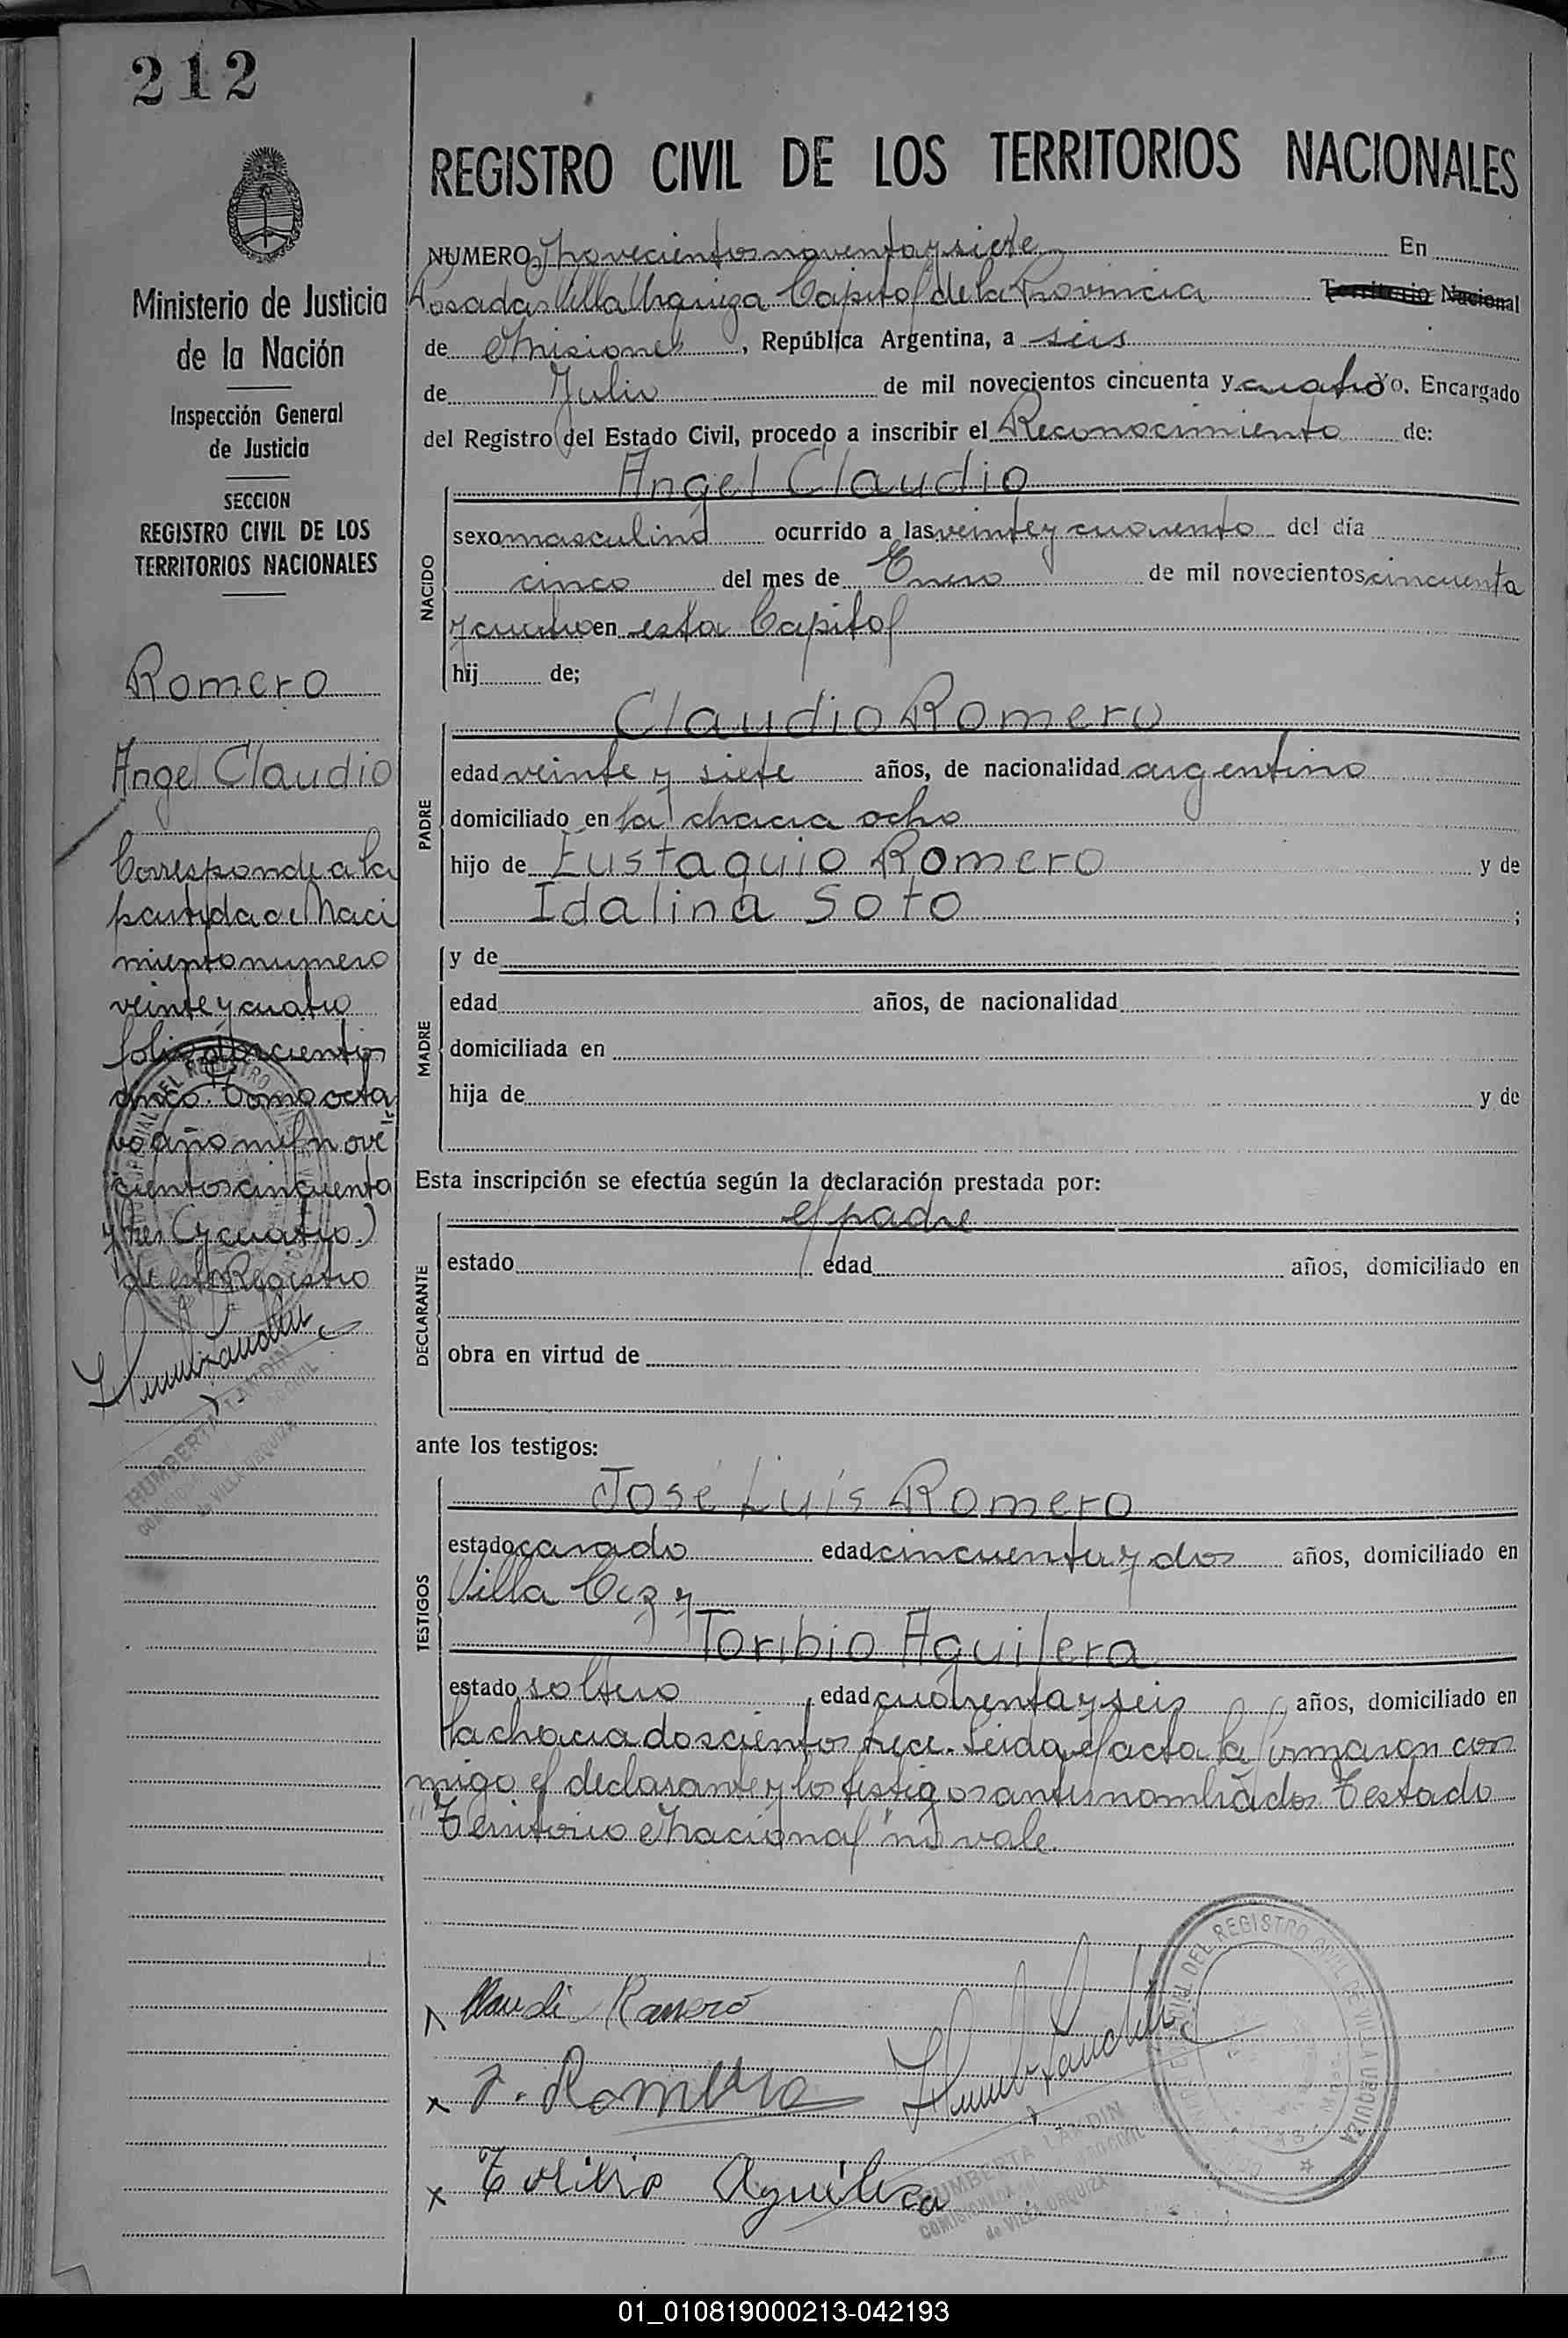 212
REGISTRO CIVIL DE LOS TERRITORIOS NACIONALES
Ministerio de Justicia
de la Nación
Inspección General
de Justicia
SECCION
REGISTRO CIVIL DE LOS
TERRITORIOS NACIONALES
Romero
Angel Claudio
Corresponde a la
partida de Naci
miento numero
veinte y cuatro
folio doscientos
cinco. Tomo octa
vo año mil nove
cientos cincuenta
y tres (y cuatro)
de este Registro
HUMBERTA LANDIN
de VILLA URQUIZA
NUMERO Novecientos noventa y siete En
Posadas Villa Urquiza Capital de la Provincia Territorio Nacional
de Misiones, República Argentina, a seis
de Julio de mil novecientos cincuenta y cuatro Yo, Encargado
del Registro del Estado Civil, procedo a inscribir el Reconocimiento de:
NACIDO
Angel Claudio
sexo masculino ocurrido a las veinte y cuarenta del día
cinco del mes de Enero de mil novecientos cincuenta
y cuatro en esta Capital
hij de;
PADRE
Claudio Romero
edad veinte y siete años, de nacionalidad argentino
domiciliado en la chacra ocho
hijo de Eustaquio Romero y de
Idalina Soto ;
MADRE
y de
edad años, de nacionalidad
domiciliada en
hija de y de
Esta inscripción se efectúa según la declaración prestada por:
DECLARANTE
el padre
estado edad años, domiciliado en
obra en virtud de
ante los testigos:
TESTIGOS
José Luís Romero
estado casado edad cincuenta y dos años, domiciliado en
Villa y
Toribio Aguilera
estado soltero, edad cuarenta y seis años, domiciliado en
la chacra doscientos trece. Leida el acta la firmaron con
migo el declarante y los testigos antes nombrados Testado
"Territorio Nacional" no vale.
Claudi Romero
J. Romero
Toribio Aguilera
HUMBERTA LANDIN
de VILLA URQUIZA
DEL REGISTRO CIVIL DE VILLA URQUIZA
01_010819000213-042193